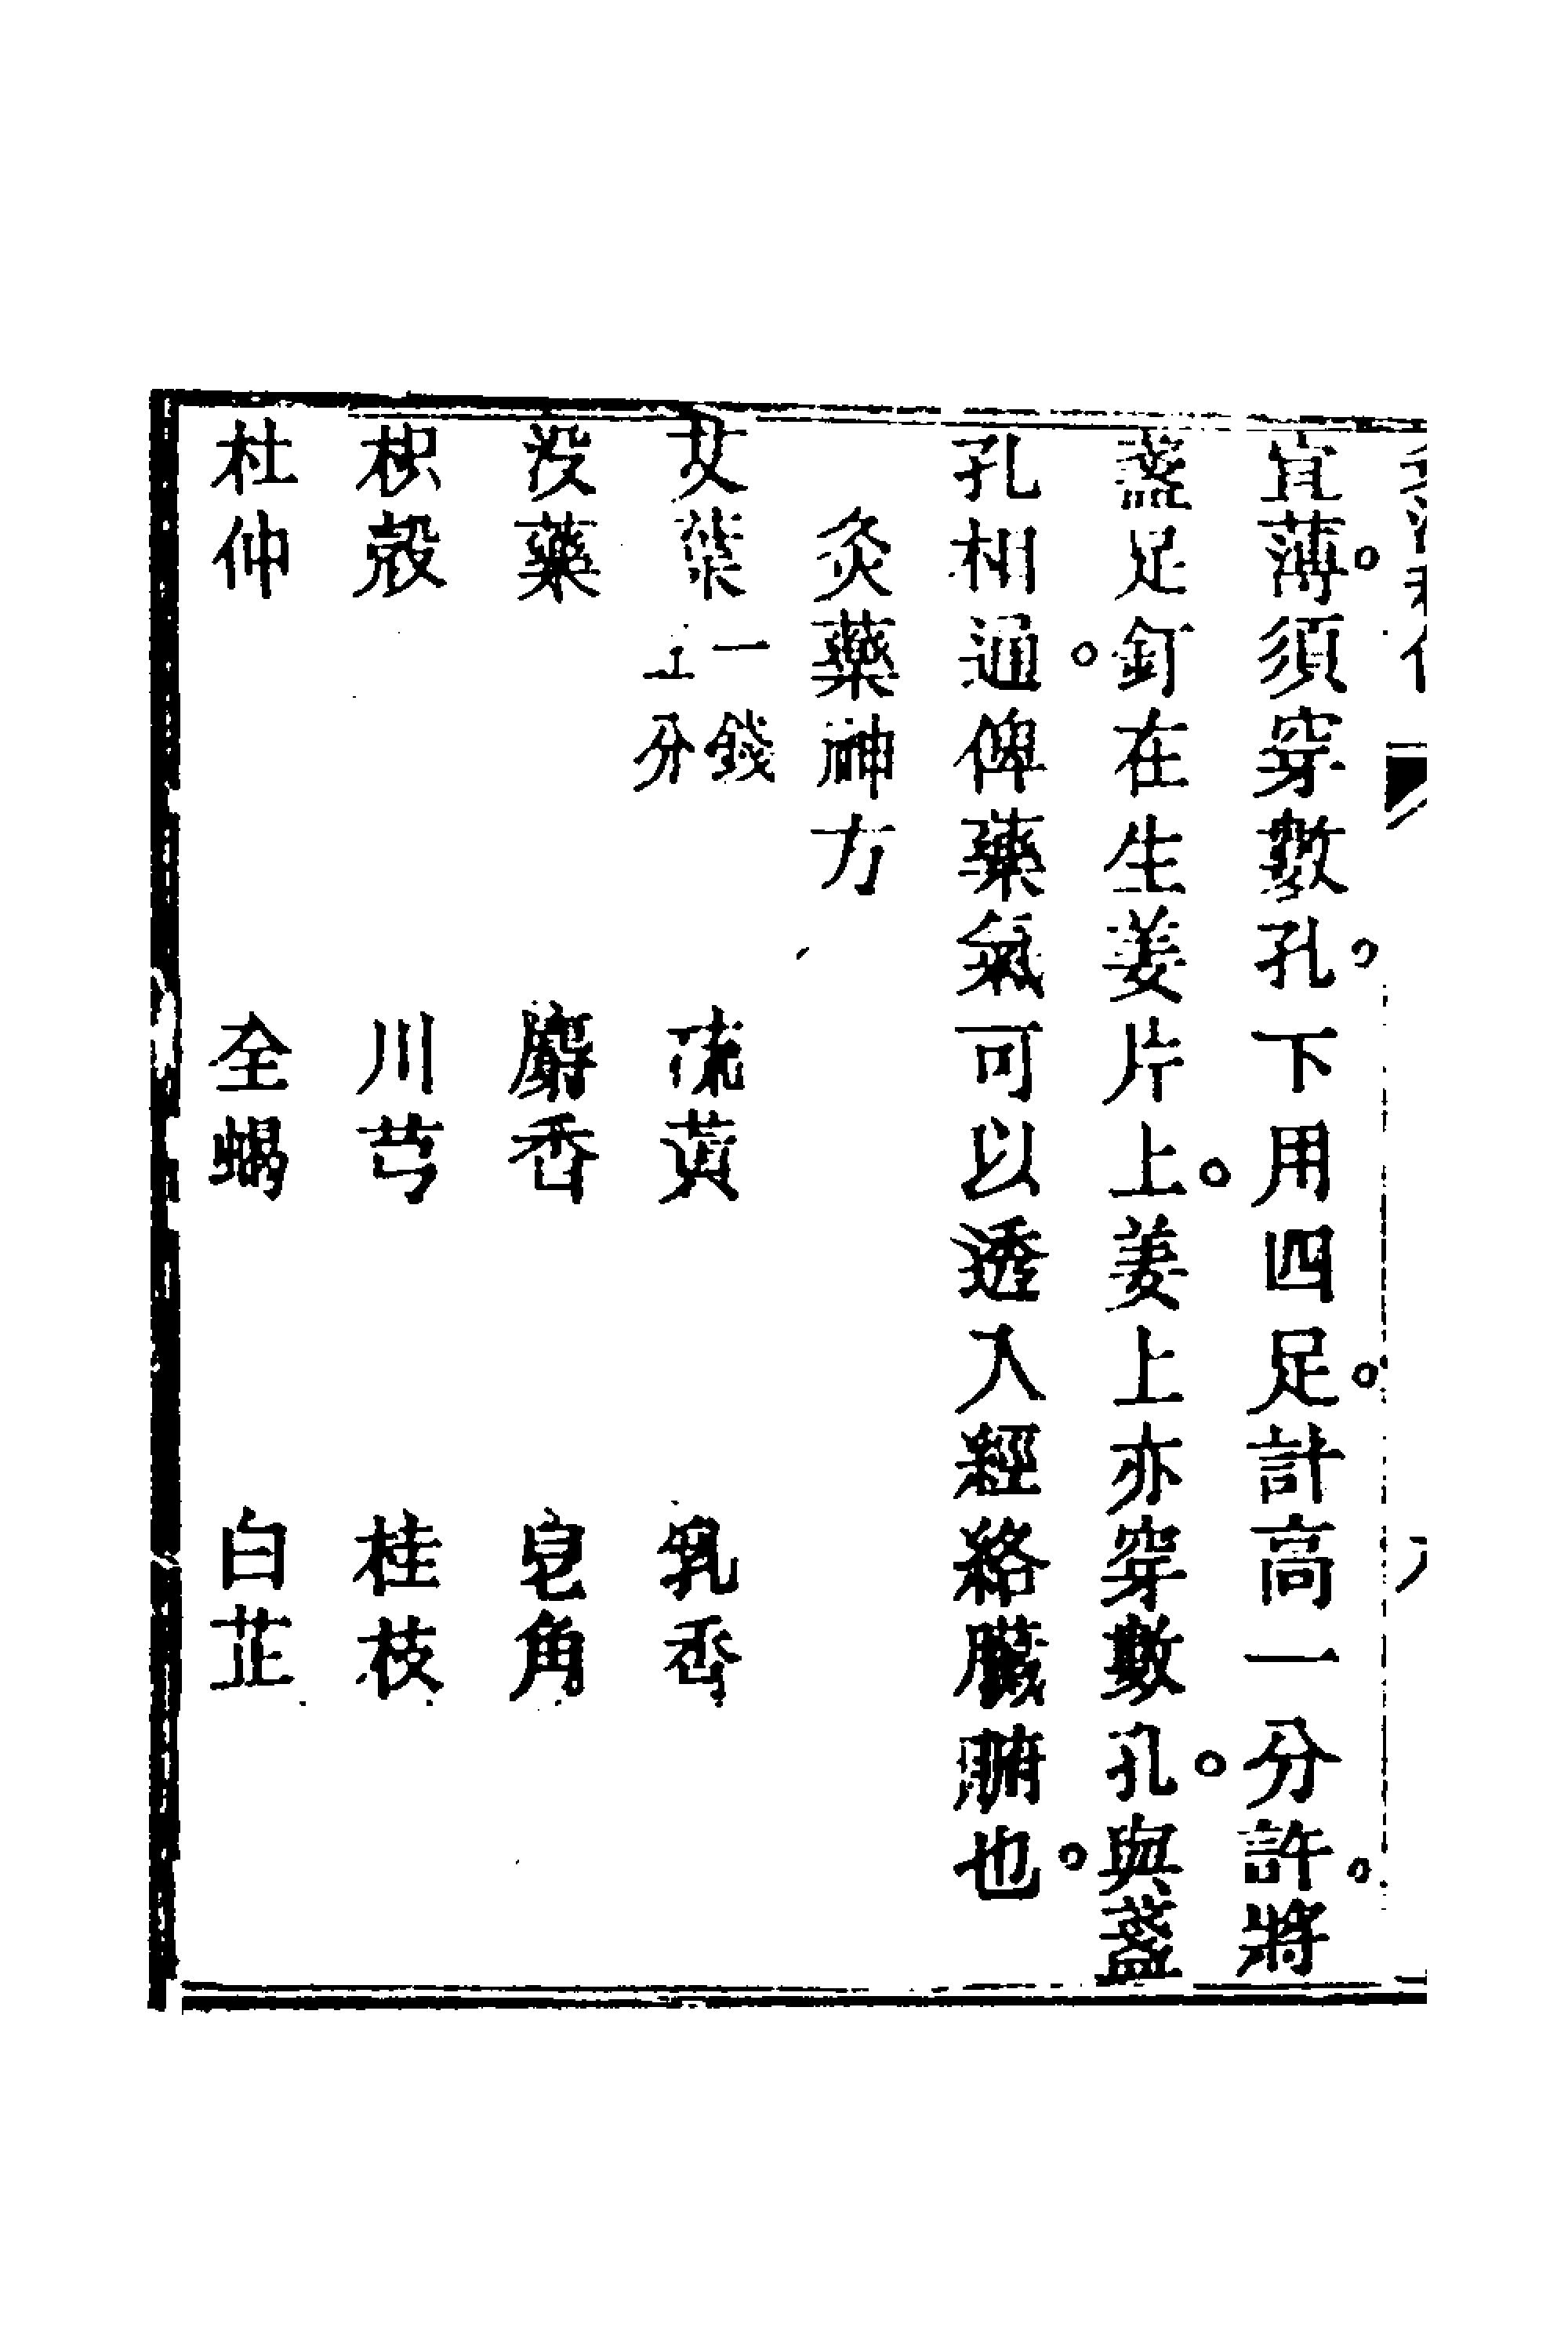 宜薄。須穿數孔。下用四足。計高一分許。將
盞足釘。在生姜片上。姜上亦穿數孔。與盞
孔相通。俾藥氣可以透入經絡臟腑也。
灸藥神方
艾葉一錢五分 硫黃 乳香
沒藥 麝香 皂角
枳殼 川芎 桂枝
杜仲 全蝎 白芷